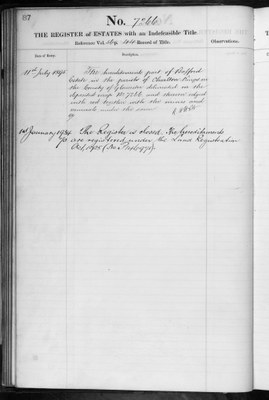 87
No. 7266
THE REGISTER of ESTATES with an Indefeasible Title.
Reference Vol. Record of Title.
Observations.
Date of Entry.
Description.
11th July 1894 The hereditaments part of Belford
Estate in the parish of Charlton Kings in
the County of Gloucester delineated on the
deposited map No. 7266 and thereon edged
with red together with the mines and
minerals under the same
1st January 1926 The Register is closed. The hereditaments
are registered under the Land Registration
Act, 1925